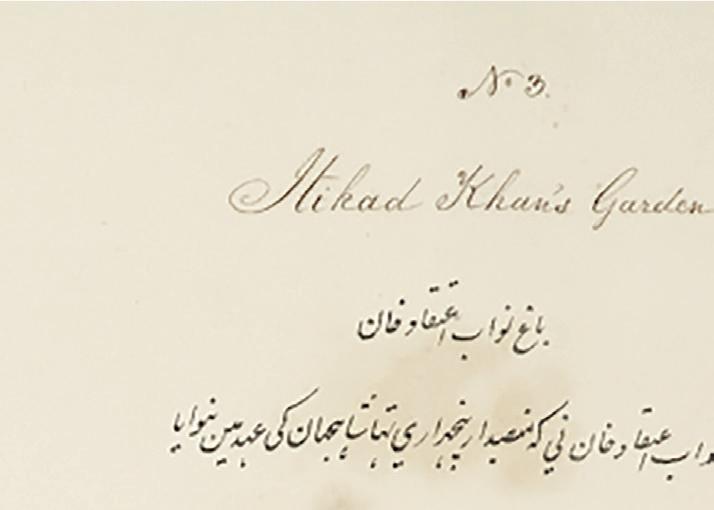 No 3.
Itikad Khan's Garden
باغ نواب اعتقاد خان
نواب اعتقاد خان ني که منصبدار پنجهزاري تها شاہجهان کی عہد مین بنوایا